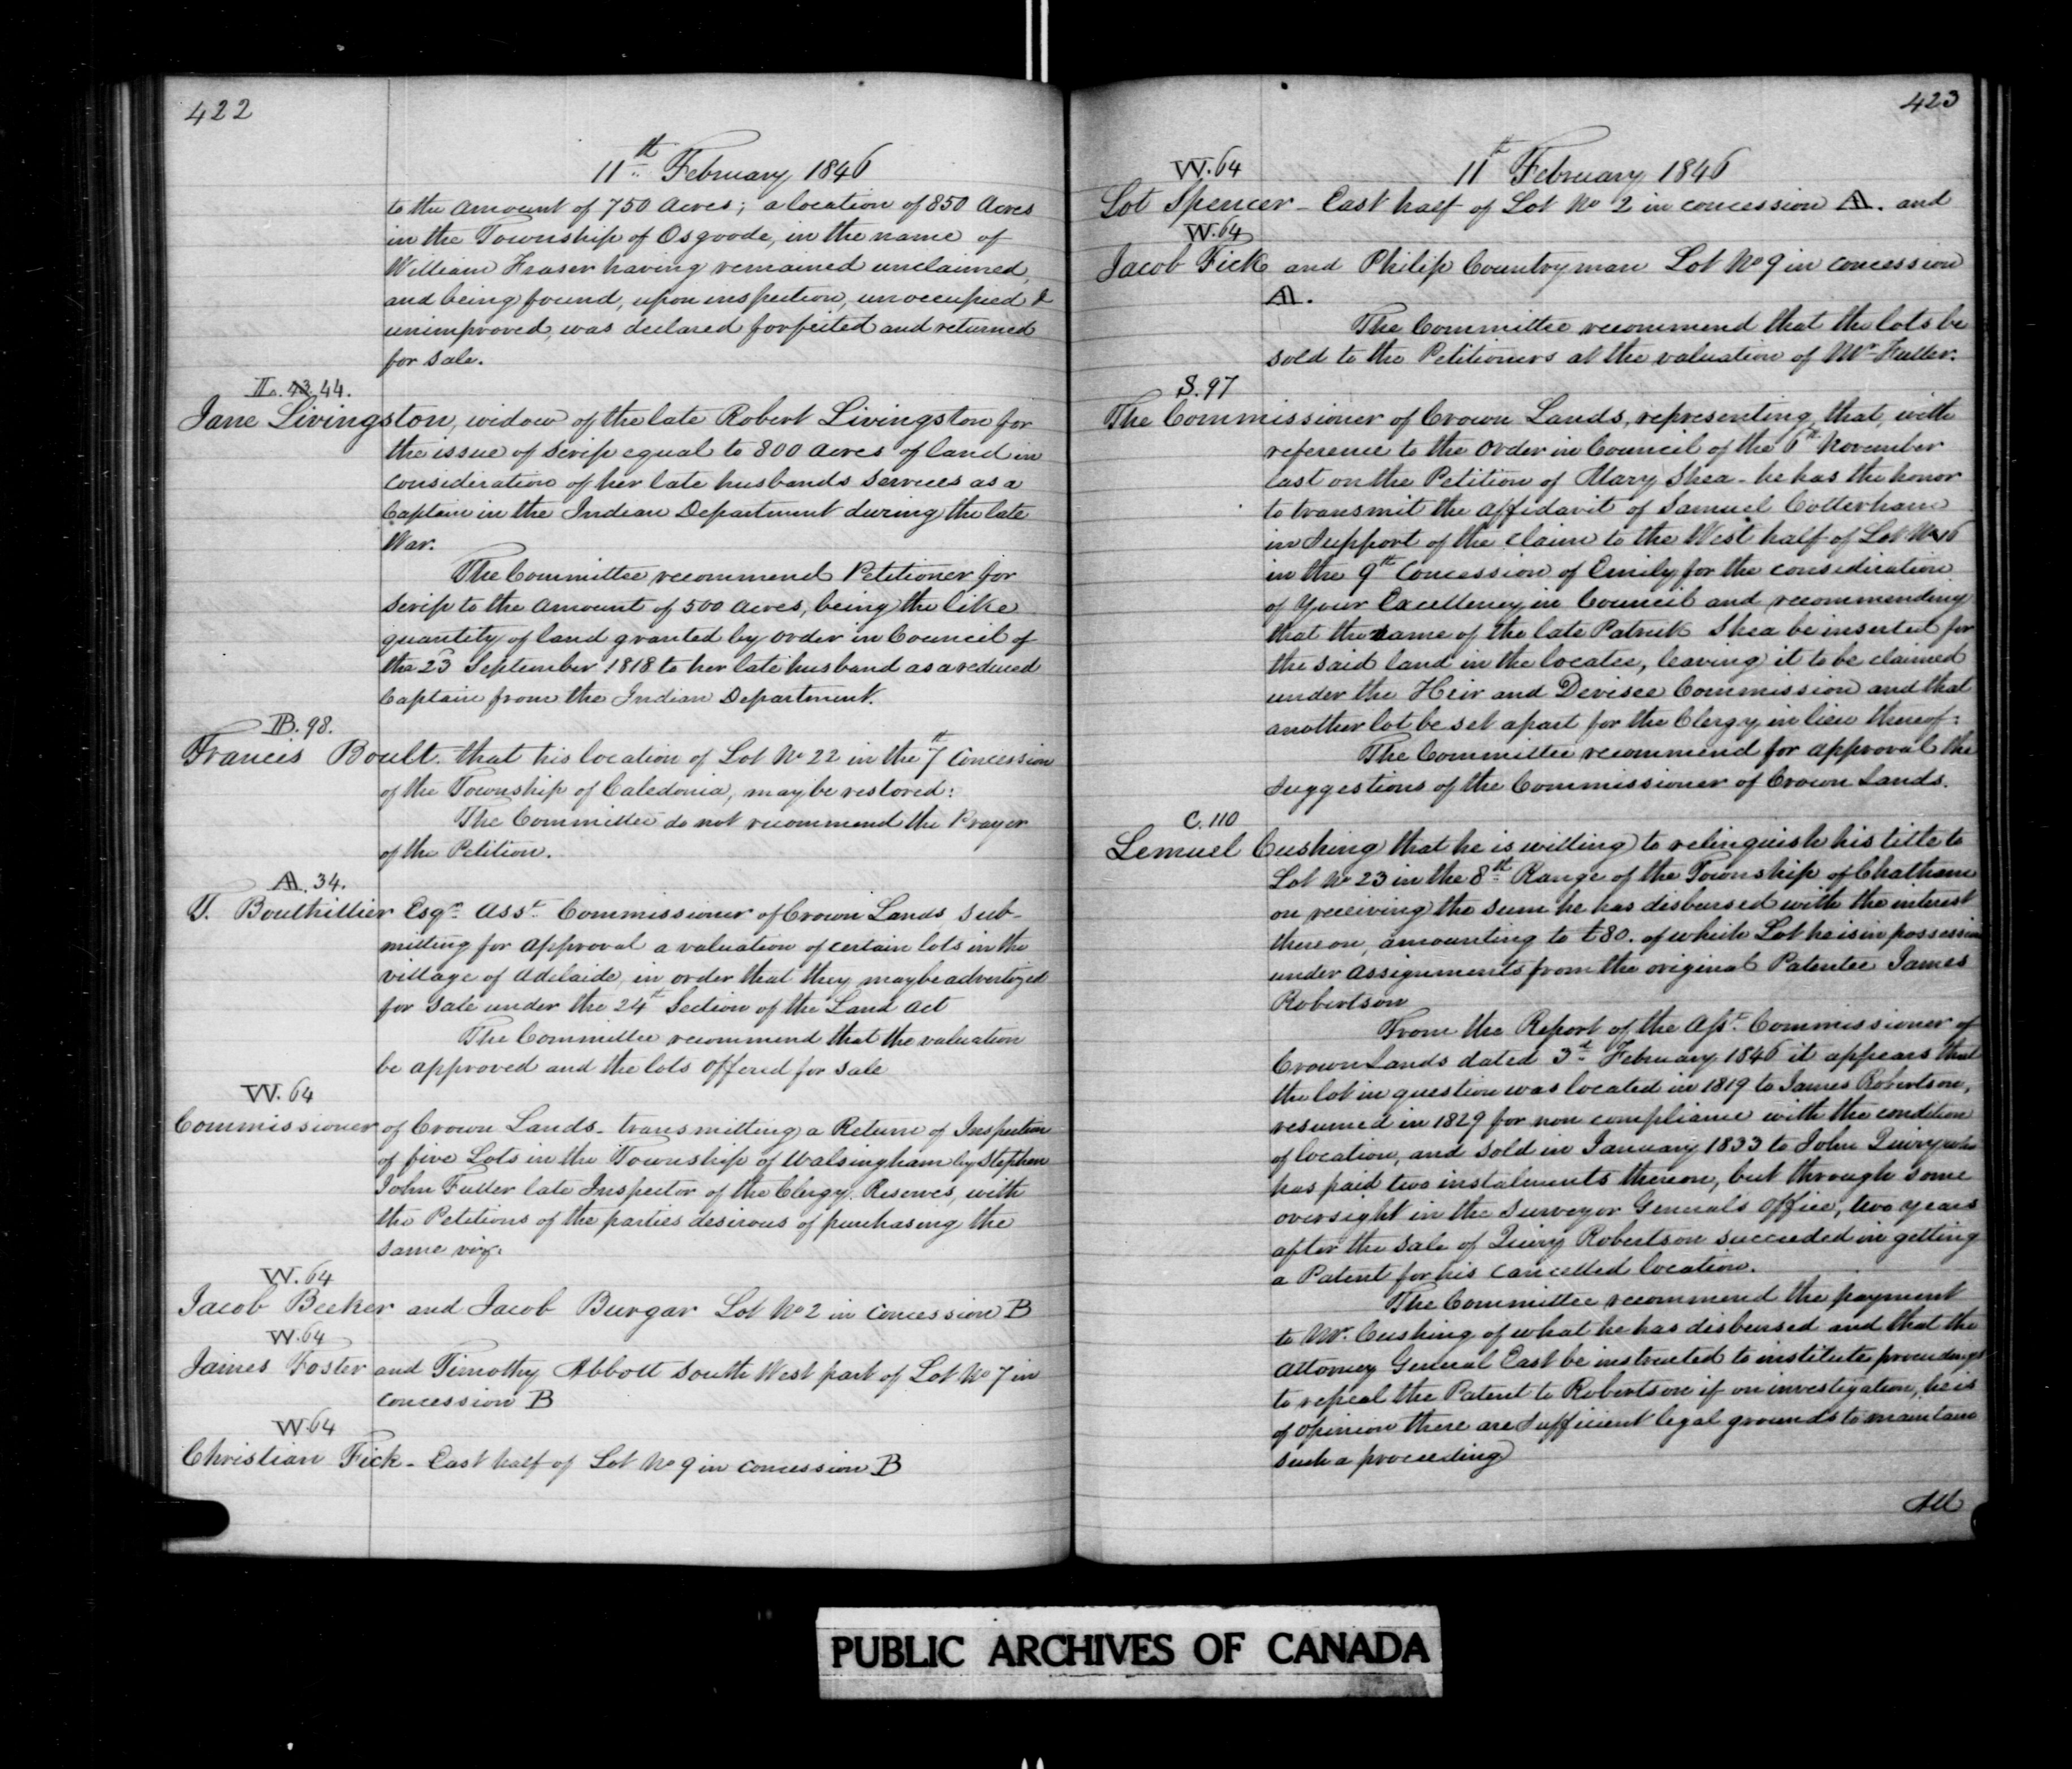 422
11th February 1846
to the amount of 750 Acres; a location of 850 Acres
in the Township of Osgoode, in the name of
William Fraser having remained unclaimed,
and being found, upon inspection, unoccupied &
unimproved, was declared forfeited and returned
for sale.
L. 43 44.
Jane Livingston, widow of the late Robert Livingston for
the issue of scrip equal to 800 acres of land in
consideration of her late husbands services as a
Captain in the Indian Department during the late
War.
The Committee recommend Petitioner for
scrip to the amount of 500 acres, being the like
quantity of land granted by order in Council of
the 23 September 1818 to her late husband as a reduced
Captain from the Indian Department.
B. 98.
Francis Boult. that his location of Lot No 22 in the 7th Concession
of the Township of Caledonia, may be restored:
The Committee do not recommend the Prayer
of the Petition.
A. 34.
T. Bouthillier Esqr Asst Commissioner of Crown Lands, sub-
mitting for approval a valuation of certain lots in the
village of Adelaide, in order that they may be advertized
for sale under the 24th Section of the Land Act
The Committee recommend that the valuation
be approved and the lots offered for sale
W. 64
Commissioner of Crown Lands. transmitting a Return of Inspection
of five Lots in the Township of Walsingham by Stephen
John Fuller late Inspector of the Clergy Reserves, with
the Petitions of the parties desirous of purchasing the
same viz.
W. 64
Jacob Becker and Jacob Burgar Lot No 2 in Concession B
W. 64
James Foster and Timothy Abbott South West part of Lot No 7 in
Concession B
W. 64
Christian Fick - East half of Lot No 9 in concession B
423
11th February 1846
W. 64
Lot Spencer - East half of Lot No 2 in concession A. and
W. 64
Jacob Fick and Philip Countryman Lot No 9 in concession
A.
The Committee recommend that the lots be
sold to the Petitioners at the valuation of Mr Fuller.
S. 97
The Commissioner of Crown Lands, representing, that, with
reference to the order in Council of the 6th November
last on the Petition of Mary Shea - he has the honor
to transmit the affidavit of Samuel Cotterham
in support of the claim to the West half of Lot No 16
in the 9th Concession of Emily, for the consideration
of Your Excellency in Council and recommending
that the name of the late Patrick Shea be inserted for
the said land in the locatee, leaving it to be claimed
under the Heir and Devisee Commission and that
another lot be set apart for the Clergy in lieu thereof:
The Committee recommend for approval the
suggestions of the Commissioner of Crown Lands.
C. 110
Lemuel Cushing that he is willing to relinquish his title to
Lot No 23 in the 8th Range of the Township of Chatham
on receiving the sum he has disbursed with the interest
thereon, amounting to £80. of which Lot he is in possession
under assignments from the original Patentee James
Robertson
From the Report of the Asst Commissioner of
Crown Lands dated 3d February 1846 it appears that
the lot in question was located in 1819 to James Robertson,
resumed in 1829 for non compliance with the condition
of location, and sold in January 1833 to John Quiry who
has paid two instalments thereon, but through some
oversight in the Surveyor Generals office, two years
after the sale of Quiry Robertson succeeded in getting
a Patent for his cancelled location.
The Committee recommend the payment
to Mr. Cushing of what he has disbursed and that the
Attorney General East be instructed to institute proceedings
to repeal the Patent to Robertson if on investigation, he is
of opinion there are sufficient legal grounds to maintain
such a proceeding
PUBLIC ARCHIVES OF CANADA